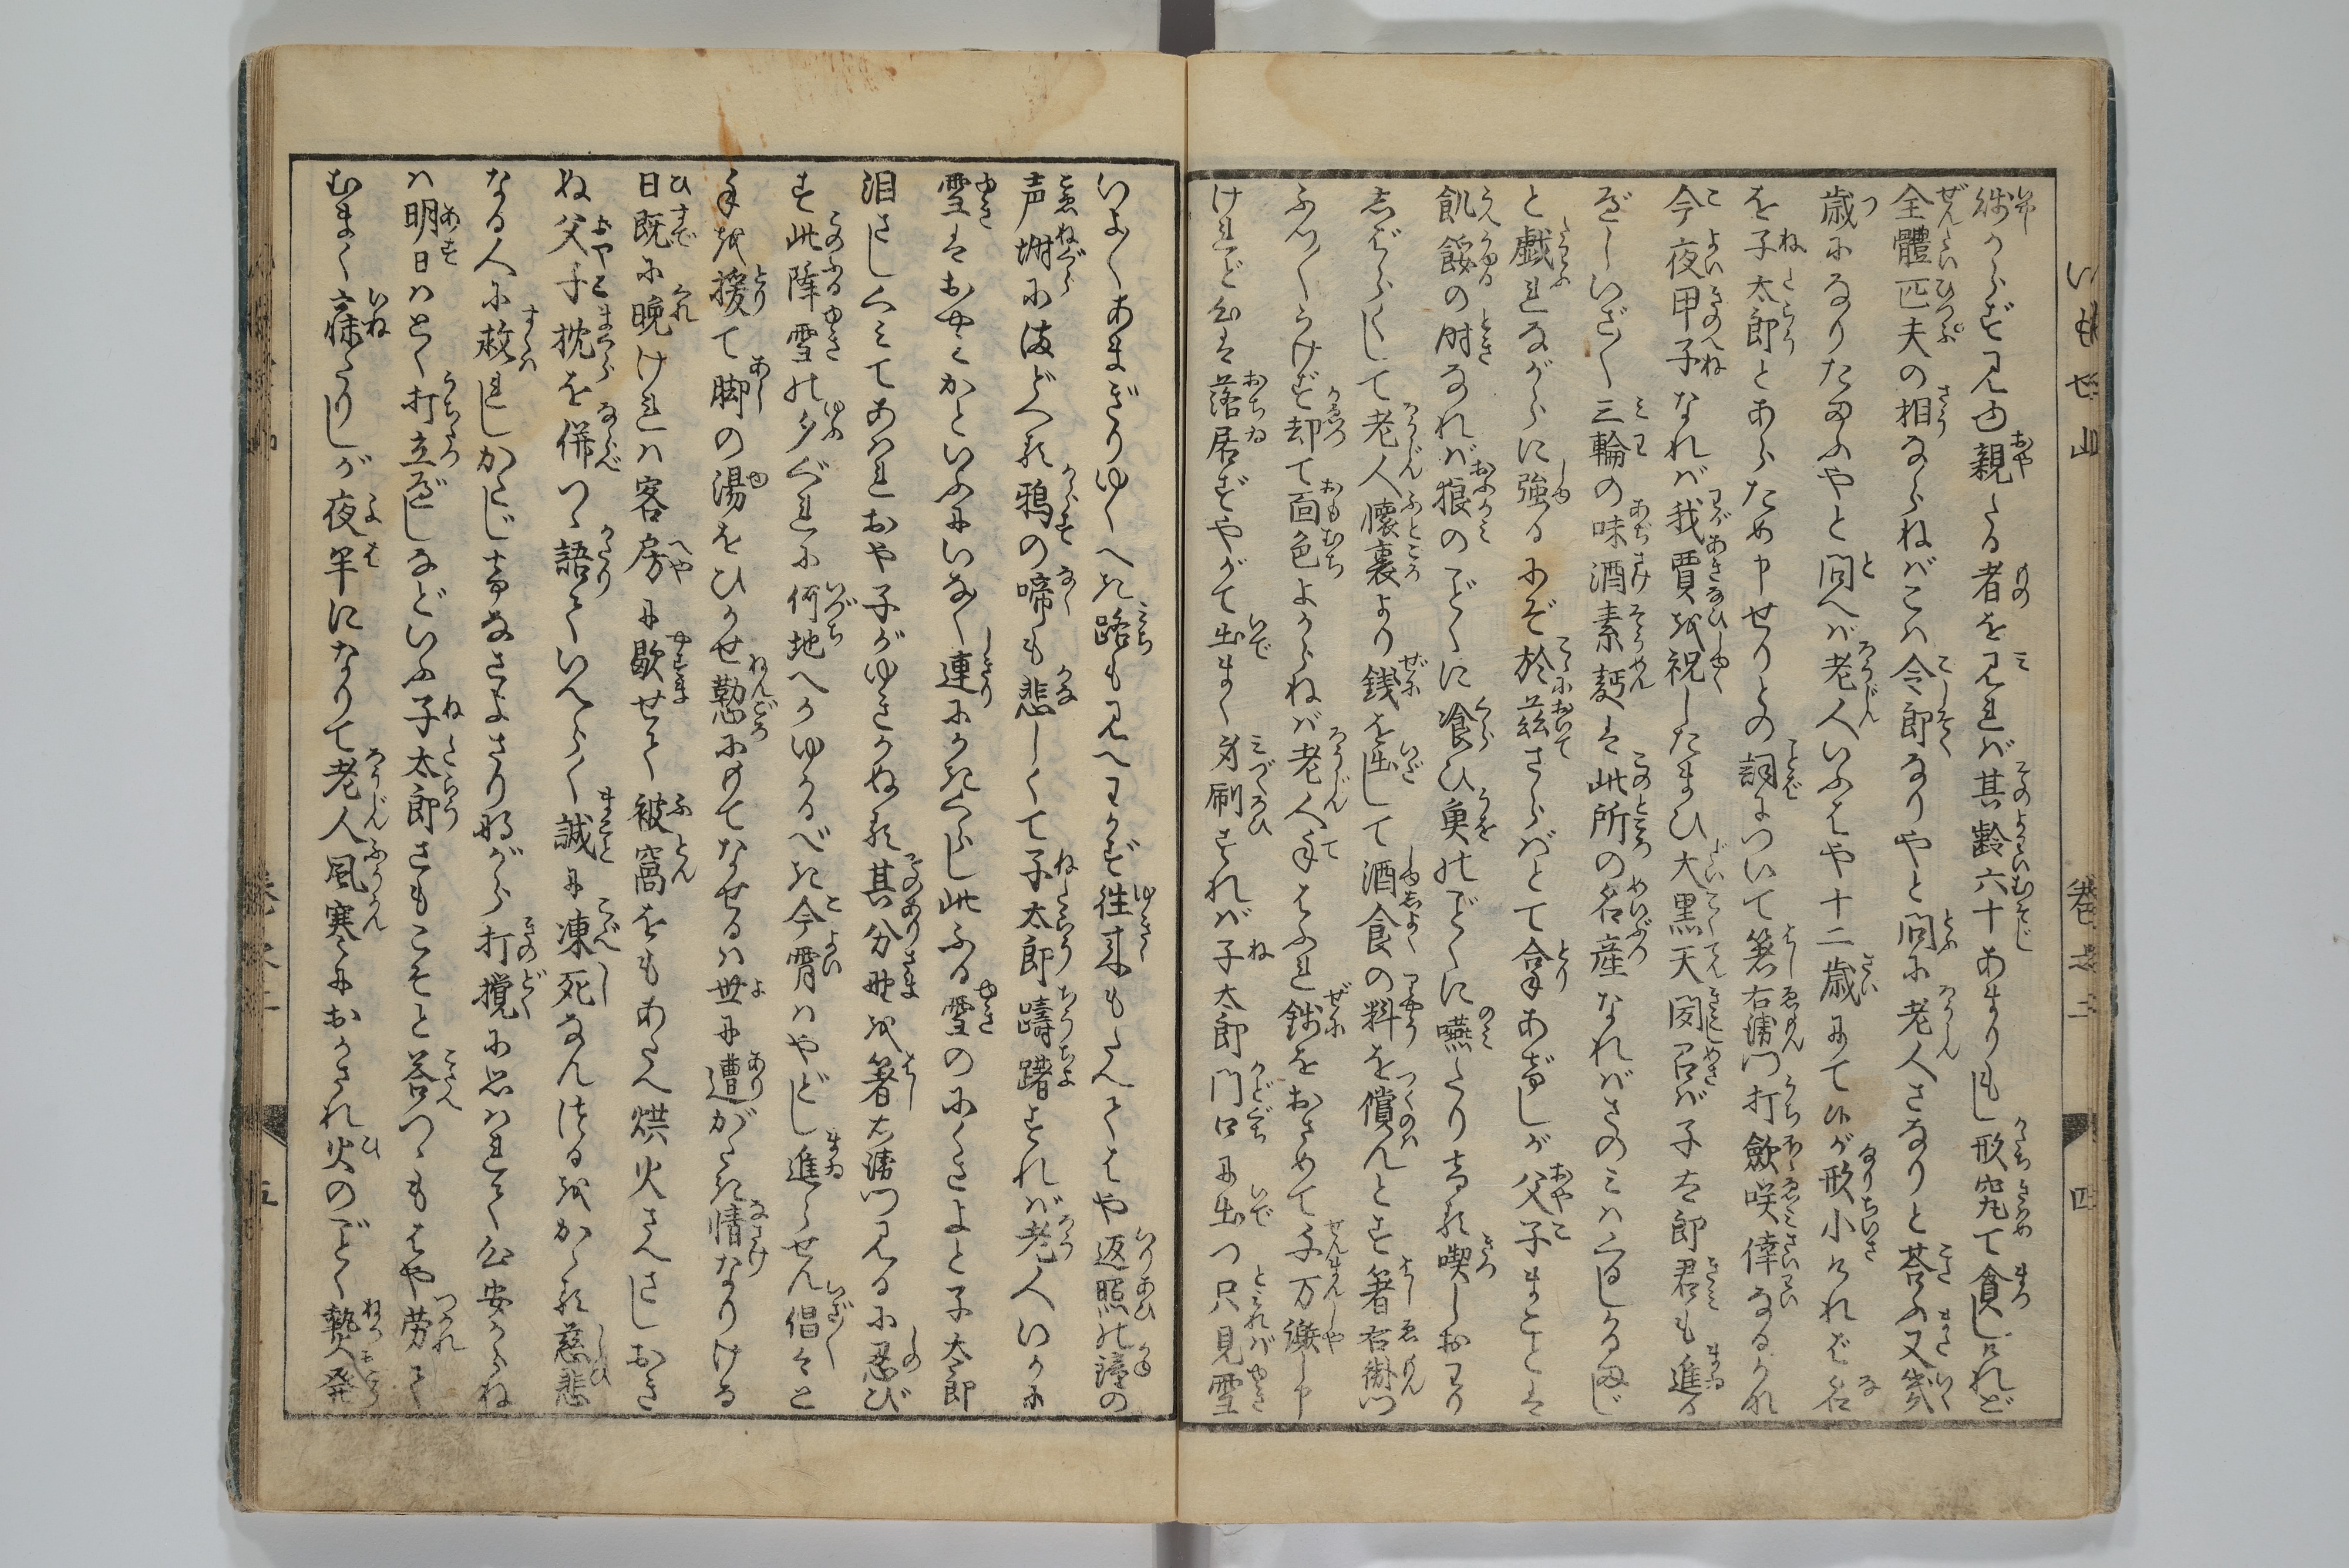 幼からず又也親たる者を見れば其齢六十あまりもし形究て貪しけれど
全體匹夫の相ならねばこは令郎なりやと問に老人さなりと荅ふ又幾
歳になりたまふやと問へば老人いふはや十二歳にて候が形小けれど名
を子太郎とあらため申せりとの詞について箸右衛門打歛咲倖なるかれ
今夜甲子なれば我賈を祝したまひ大黒天聞召ば子太郎君も進る
べしいざ〳〵三輪の味酒素麪は此所の名産なればさのミハくるしかるまじ
と戯れながらに強るにぞ於茲さらばとて拿あげしが父子まことは
飢餒の时なれば狼のごとくに飡ひ魚のごとくに嚥たり吉野喫しおわり
しばらくして老人懐裏より銭を出して酒食の料を償んとす箸右衛門
ふつ〳〵うけず却て面色よからねば老人手はふれ銭をおさめて千万謝し申
けれど心は落居ずやがて出まく身刷すれば子太郎門口に出つ只見雪
いよ〳〵あまぎりゆくへき路も見へわかず往来もたえてはや返照の鐘の
声塒にまどへる鴉の啼も悲しくて子太郎躊躇すれば老人いかに
雪はおやミかといふにいな〳〵連にかきくらし此ふる雪のにくさよと子太郎
泪さしくミてあはれおや子がゆきかぬる其分野を箸右衛門見るに忍び
ず此降雪の夕ぐれに何地へかゆかるべき今霄ハやどし進らせん倡々と
手を援て脚の湯をひかせ懃にもてなせるハ世に遭がたき情なりける
日既に晩ければ客房に歇せて被窩をもあたへ烘火さへさしおき
ぬ父子枕を併つゝ語ていへらく誠に凍死なんはるをかゝる慈悲
なる人に救れしかたじけなさよさり那がら打攪に思はれて公安からね
ハ明日ハとく打立べしなどいふ子太郎さもこそと荅つゝもはや労て
むまく寐たりしが夜半になりて老人風寒におかされ火のごとく㷱発
いもせ山　巻之三　四